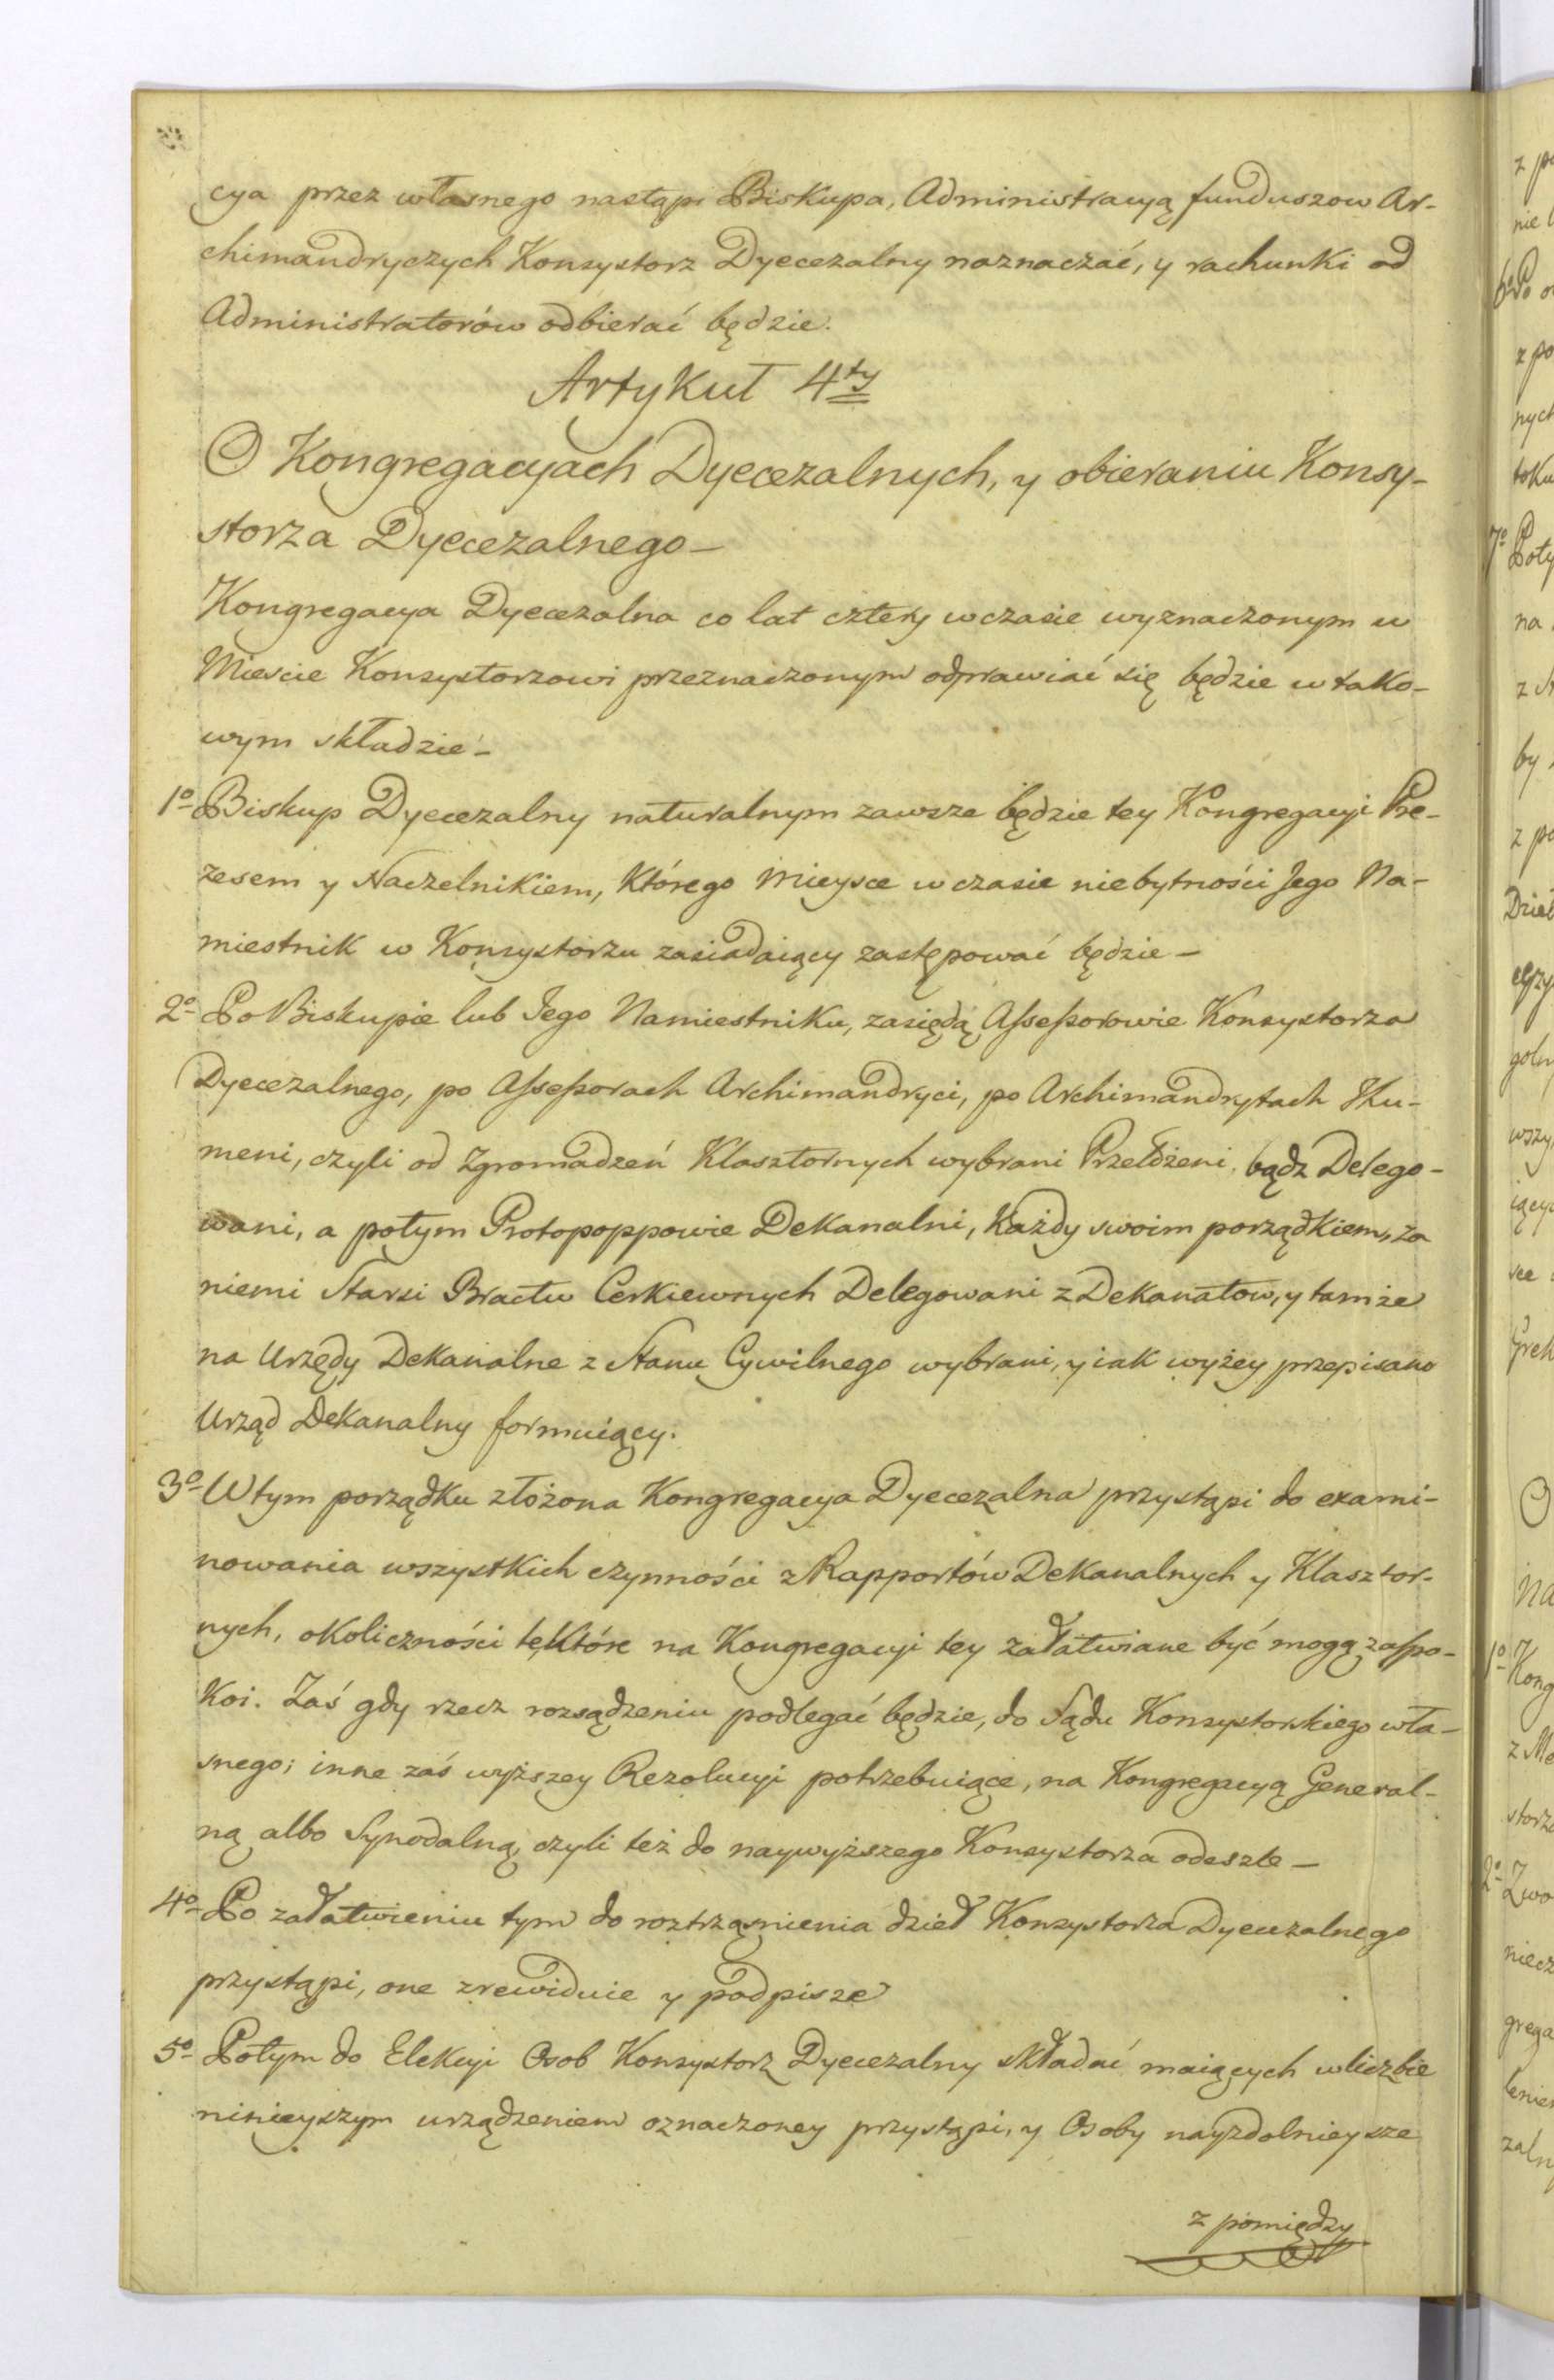 cya przez własnego nastąpi Biskupa, Administracyą funduszow Ar-
chimandryczych Konsystorz Dyecezalny naznaczać, y rachunki od
Administratorów odbierać będzie.
Artykuł 4ty
O Kongregacyach Dyecezalnych, y obieraniu Konsy-
storza Dyecezalnego –
Kongregacya Dyecezalna co lat cztery w czasie wyznaczonym w
Mieście Konsystorzowi przeznaczonym odprawiać się będzie w tako-
wym składzie –
1o Biskup Dyecezalny naturalnym zawsze będzie tey Kongregacyi Pre-
zesem y Naczelnikiem, Którego Mieysce w czasie niebytności Jego Na-
miestnik w Konsystorzu zasiadaiący zastępować będzie –
2o Po Biskupie lub Jego Namiestniku, zasiędą Assessorowie Konsystorza
Dyecezalnego, po Assessorach Archimandryci, po Archimandrytach Ihu-
meni, czyli od Zgromadzeń Klasztornych wybrani Przełożeni, bądz Delego-
wani, a potym Protopoppowie Dekanalni, Każdy swoim porządkiem, za
niemi Starsi Bractw Cerkiewnych Delegowani z Dekanatow, y tamże
na Urzędy Dekanalne z Stanu Cywilnego wybrani, y iak wyżey przepisano
Urząd Dekanalny formuiący.
3o W tym porządku złożona Kongregacya Dyecezalna przystąpi do exami-
nowania wszystkich czynności z Rapportów Dekanalnych y Klasztor-
nych, okoliczności te, Które na Kongregacyi tey załatwiane być mogą zaspo-
Koi. Zaś gdy rzecz rozsądzeniu podlegać będzie, do Sądu Konsystorskiego wła-
snego; inne zaś wyższey Rezolucyi potrzebuiące, na Kongregacyą General-
ną albo Synodalną, czyli też do naywyższego Konsystorza odeszle –
4o Po załatwieniu tym do roztrząsnienia dzieł Konsystorza Dyecezalnego
przystąpi, one zrewiduie y podpisze
5o Potym do Elekcyi Osob Konsystorz Dyecezalny składać maiących w liczbie
ninieyszym urządzeniem oznaczoney przystąpi, y Osoby nayzdolnieysze
z pomiędzy